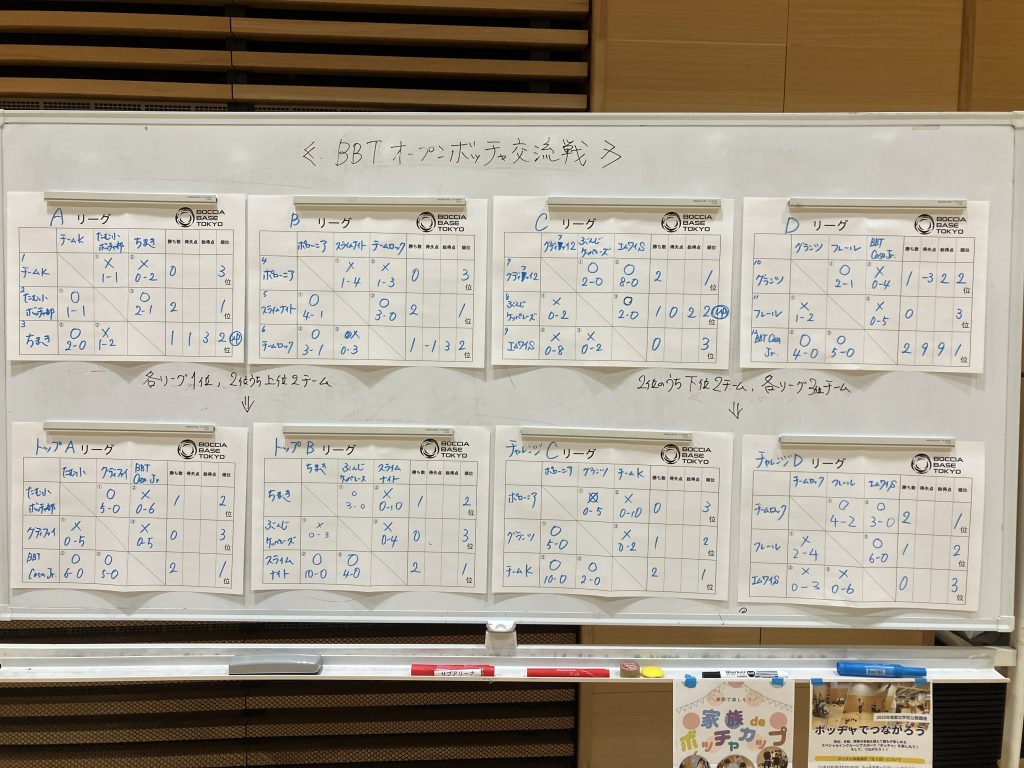 《 BBT オープンボッチャ交流戦 》
A リーグ
BOCCIA BASE TOKYO
チームK たむ小ボッチャ部 ちまき 勝ち数 得失点 総得点 順位
1 チームK × 1-1 × 0-2 0 3位
2 たむ小ボッチャ部 ○ 1-1 ○ 2-1 2 1位
3 ちまき ○ 2-0 × 1-2 1 1 3 2位
B リーグ
BOCCIA BASE TOKYO
ボローニア スライムナイト チームロック 勝ち数 得失点 総得点 順位
4 ボローニア × 1-4 × 1-3 0 3位
5 スライムナイト ○ 4-1 ○ 3-0 2 1位
6 チームロック ○ 3-1 × 0-3 1 -1 3 2位
C リーグ
BOCCIA BASE TOKYO
エムワイS 勝ち数 得失点 総得点 順位
7 ○ 2-0 ○ 8-0 2 1位
8 × 0-2 ○ 2-0 1 0 2 2位
9 エムワイS × 0-8 × 0-2 0 3位
D リーグ
BOCCIA BASE TOKYO
グランツ フレール BBT Casa Jr. 勝ち数 得失点 総得点 順位
10 グランツ ○ 2-1 × 0-4 1 -3 2 2位
11 フレール × 1-2 × 0-5 0 3位
12 BBT Casa Jr. ○ 4-0 ○ 5-0 2 9 9 1位
各リーグ1位, 2位うち上位2チーム
⇓
2位のうち下位2チーム, 各リーグ3位チーム
⇓
トップA リーグ
BOCCIA BASE TOKYO
たむ小 グッディファイ BBT Casa Jr. 勝ち数 得失点 総得点 順位
たむ小ボッチャ部 ○ 5-0 × 0-6 1 2位
× 0-5 × 0-5 0 3位
BBT Casa Jr. ○ 6-0 ○ 5-0 2 1位
トップB リーグ
BOCCIA BASE TOKYO
ちまき スライムナイト 勝ち数 得失点 総得点 順位
ちまき ○ 3-0 × 0-10 1 2位
× 0-3 × 0-4 0 3位
スライムナイト ○ 10-0 ○ 4-0 2 1位
チャレンジC リーグ
BOCCIA BASE TOKYO
ボローニア グランツ チームK 勝ち数 得失点 総得点 順位
ボローニア × 0-5 × 0-10 0 3位
グランツ ○ 5-0 × 0-2 1 2位
チームK ○ 10-0 ○ 2-0 2 1位
チャレンジD リーグ
BOCCIA BASE TOKYO
チームロック フレール エムワイS 勝ち数 得失点 総得点 順位
チームロック ○ 4-2 ○ 3-0 2 1位
フレール × 2-4 ○ 6-0 1 2位
エムワイS × 0-3 × 0-6 0 3位
サブアリーナ
家族で楽しもう
家族de
ボッチャカップ
ボッチャでつながろう